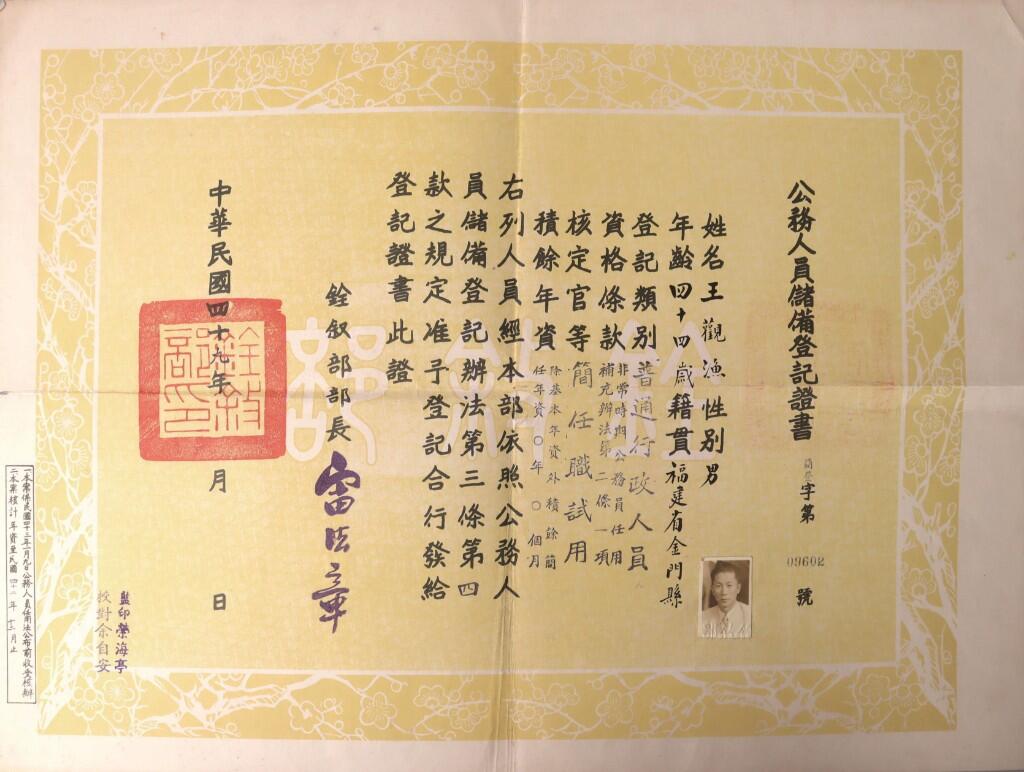 公務人員儲備登記證書
字第09602號
姓名王觀漁性別男
年齡四十四歲籍貫福建省金門縣
登記類別普通行政人員
資格條款非常時期公務人員任用
補充辦法第二條一項
核定官等簡任職試用
積餘年資除基本年資外積餘簡
任年資〇年〇個月
右列人員經本部依照公務人
員儲備登記辦法第三條第四
款之規定准予登記合行發給
登記證書此證
銓敘部部長
雷法章
中華民國四十九年 月 日
銓敘部印
銓敘部
監印榮海亭
校對余自安
一本案係民國四十三年一月九日公務人員任用法公布前收受核辦
二本案核計年資至民國四十二年十二月止